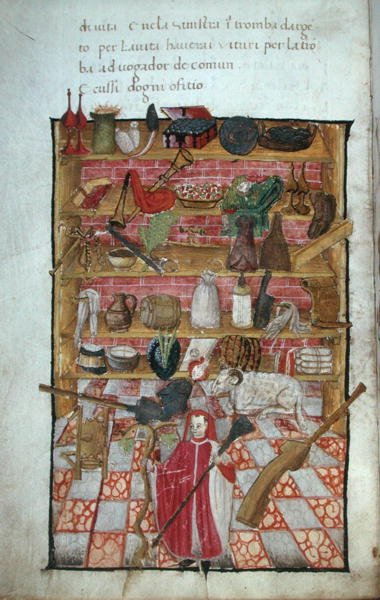 di vita E nela sinistra i tromba darge
to per la vita haverai vituri per la tro
ba advogador de comun
E cussi dogni ofitio